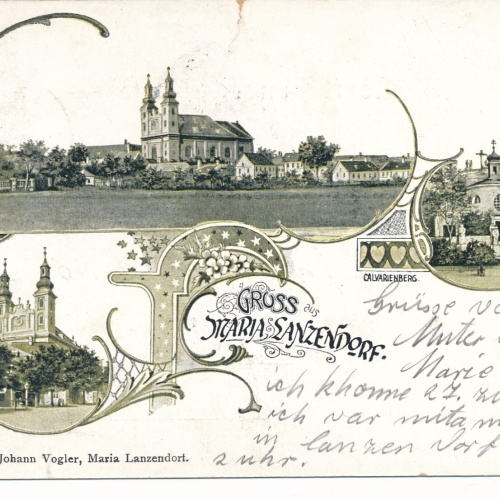 CALVARIENBERG.
GRUSS aus
MARIA LANZENDORF.
Grüsse vo
Muter
Marie
ich khome 27. zu
ich var mita
in lanzen Dorf
2 uhr.
Johann Vogler, Maria Lanzendorf.